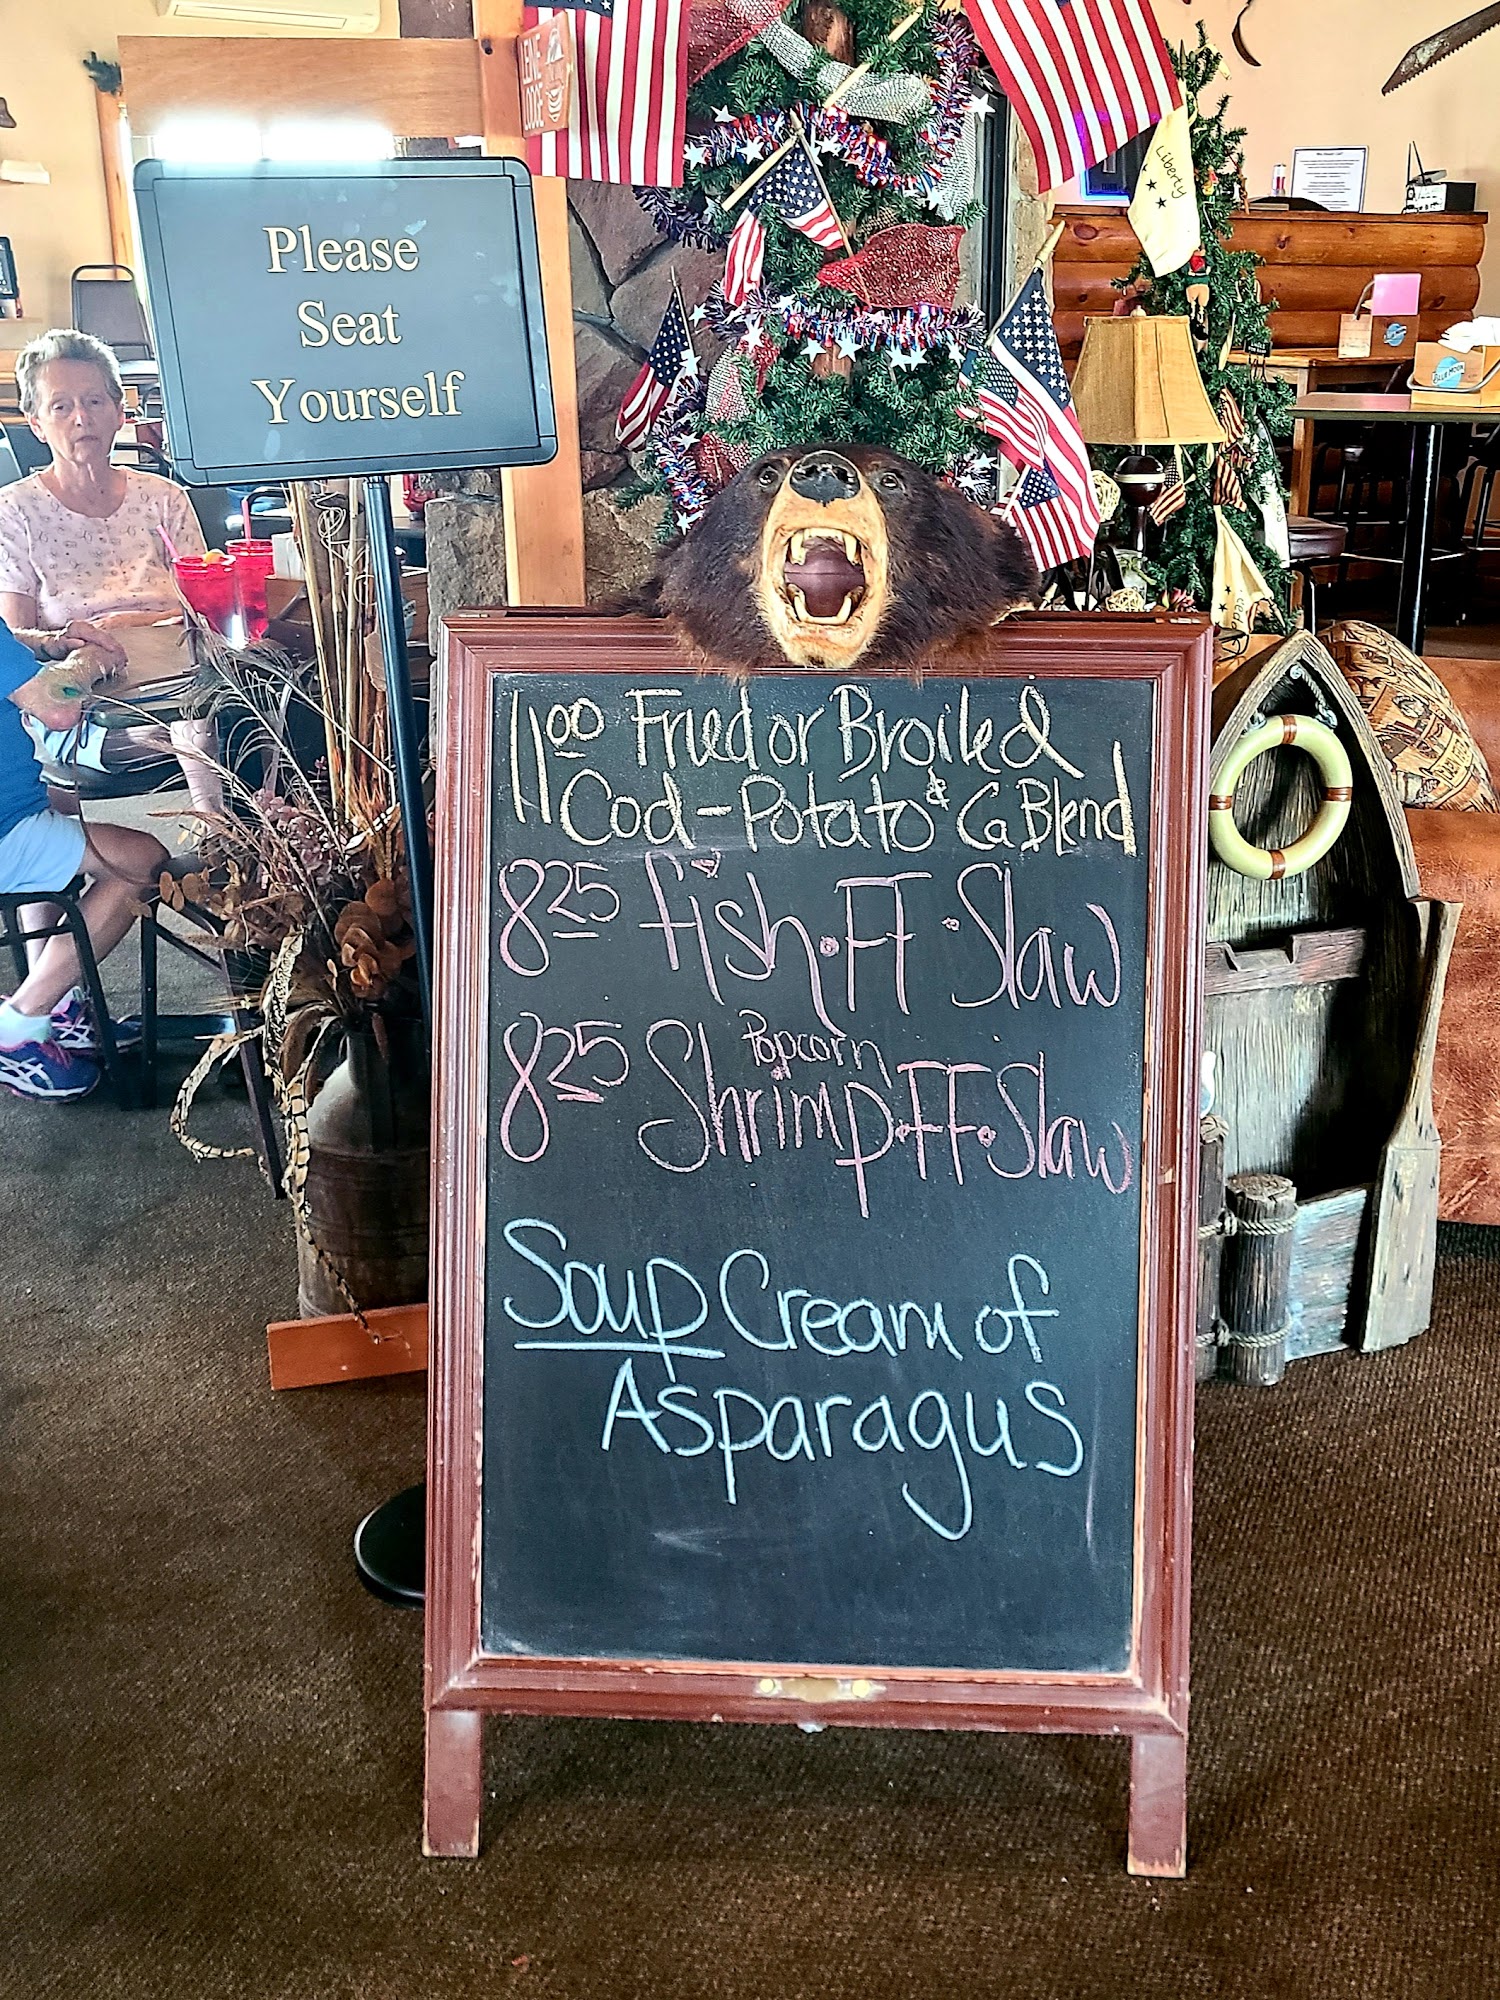 Please
Seat
Yourself
LODGE
Liberty
BLUE MOON
11 00 Fried or Broiled
Cod - Potato & Ca Blend
8 25 fish · FF · Slaw
8 25 Popcorn
Shrimp · FF · Slaw
Soup Cream of
Asparagus